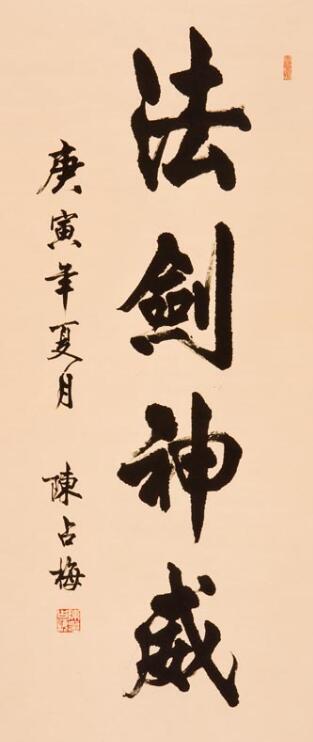 法劍神威
庚寅年夏月 陳占梅